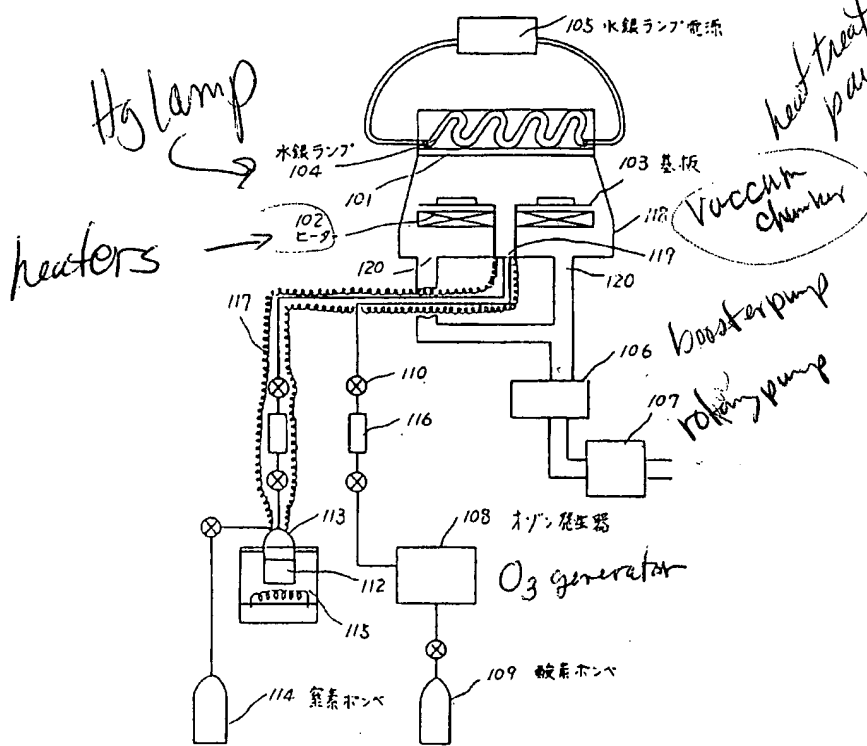 105 水銀ランプ電源
heat treat
Hg lamp
水銀ランプ
104
101
103 基板
102
ヒーター
118
vaccum
chamber
heaters
119
120
120
117
106
booster pump
110
107
rotary pump
116
113
108
オゾン発生器
112
O3 generator
115
114 窒素ボンベ
109 酸素ボンベ